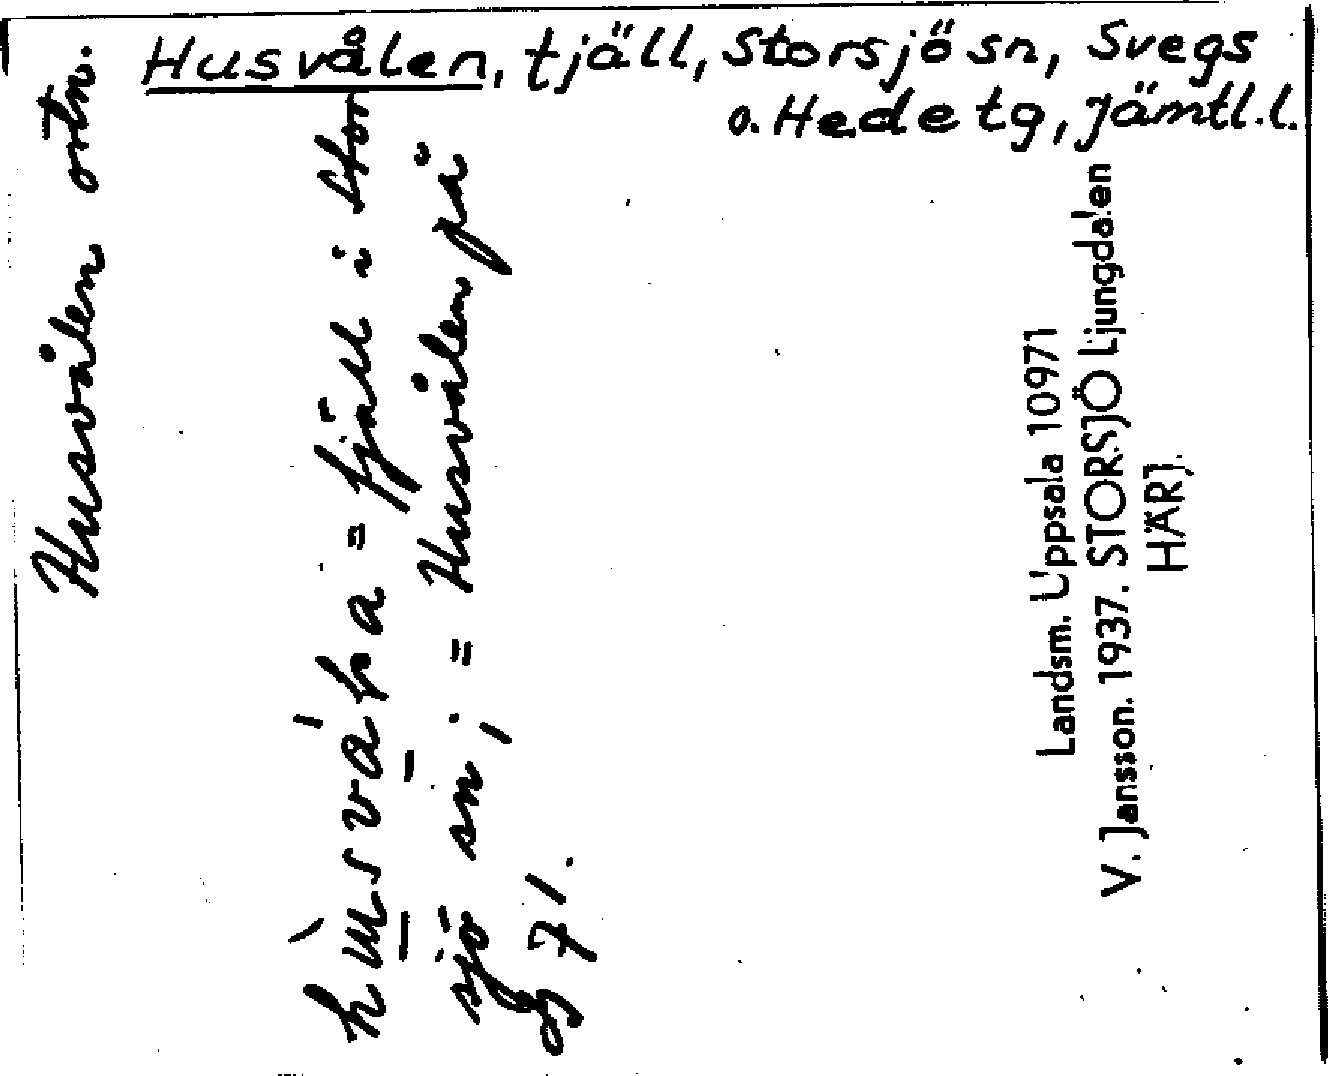 Husvålen, tjäll, Storsjö sn, Svegs
o. Hede tg, Jämtl.l.
Husvålen otn.
= fjäll i Stor
sjö sn; = Husvålen på
71.
Landsm. Uppsala 10971
V. Jansson. 1937. STORSJÖ Ljungdalen
HÄRJ.